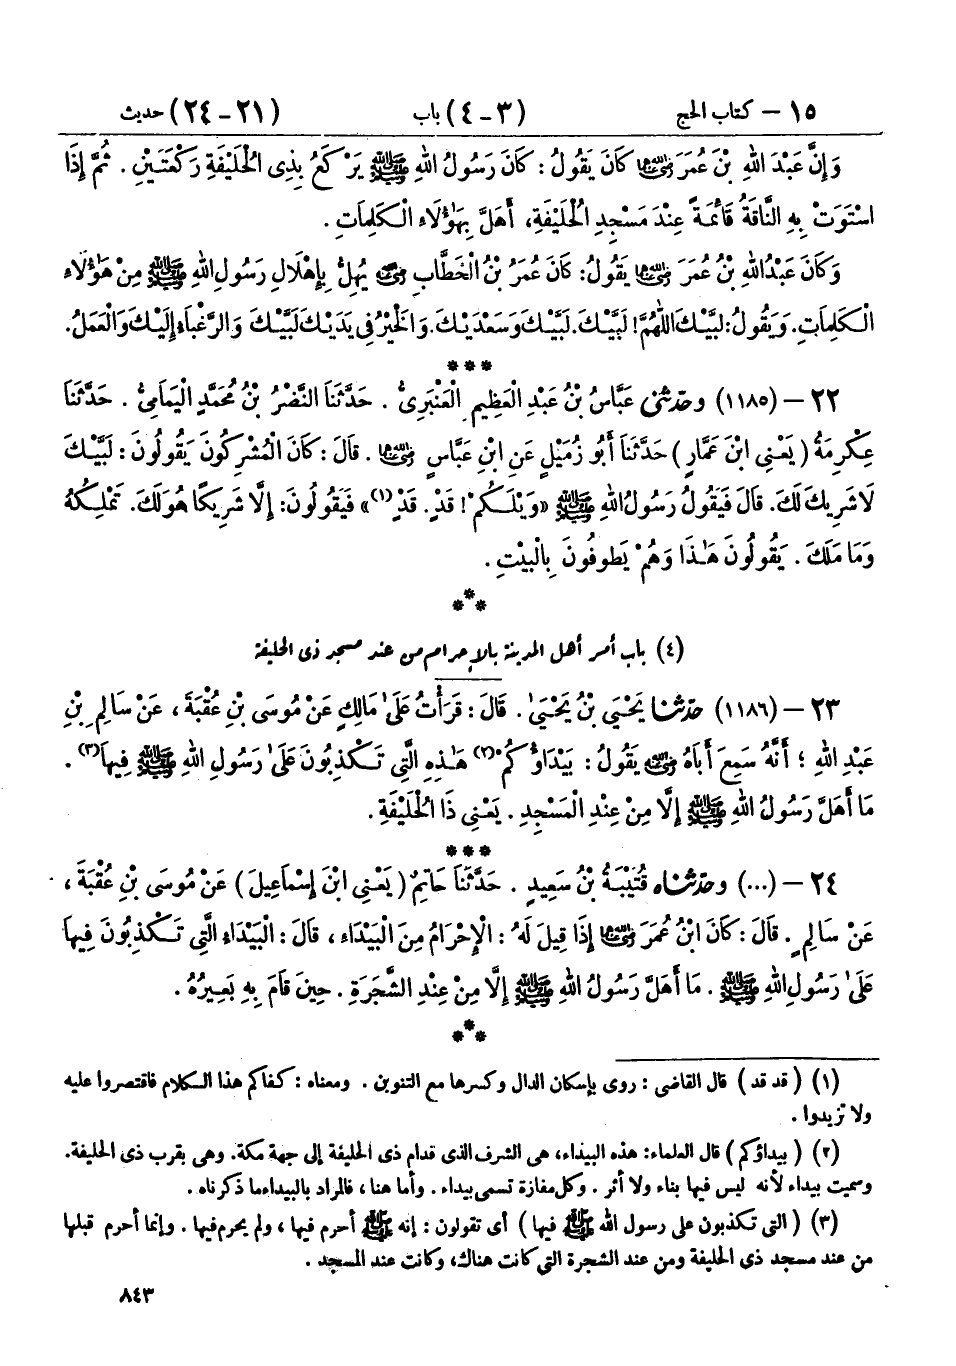 ١٥ – كتاب الحج (٣ – ٤) باب (٢١ – ٢٤) حديث
وَإِنَّ عَبْدَ اللهِ بْنَ عُمَرَ رَضِيَ اللهُ عَنْهُمَا كَانَ يَقُولُ : كَانَ رَسُولُ اللهِ ﷺ يَرْكَعُ بِذِى الْحُلَيْفَةِ رَكْعَتَيْنِ . ثُمَّ إِذَا
اسْتَوَتْ بِهِ النَّاقَةُ قَائِمَةً عِنْدَ مَسْجِدِ الْحُلَيْفَةِ، أَهَلَّ بِهَٰؤُلَاءِ الْكَلِمَاتِ .
وَكَانَ عَبْدُ اللهِ بْنُ عُمَرَ رَضِيَ اللهُ عَنْهُمَا يَقُولُ: كَانَ عُمَرُ بْنُ الْخَطَّابِ رَضِيَ اللهُ عَنْهُ يُهِلُّ بِإِهْلَالِ رَسُولِ اللهِ ﷺ مِنْ هَٰؤُلَاءِ
الْكَلِمَاتِ. وَيَقُولُ: لَبَّيْكَ اللَّهُمَّ! لَبَّيْكَ. لَبَّيْكَ وَسَعْدَيْكَ. وَالْخَيْرُ فِى يَدَيْكَ لَبَّيْكَ وَالرَّغْبَاءُ إِلَيْكَ وَالْعَمَلُ.
***
٢٢ – (١١٨٥) وحدثنى عَبَّاسُ بْنُ عَبْدِ الْعَظِيمِ الْعَنْبَرِىُّ . حَدَّثَنَا النَّضْرُ بْنُ مُحَمَّدٍ الْيَمَامِىُّ . حَدَّثَنَا
عِكْرِمَةُ ( يَعْنِى ابْنَ عَمَّارٍ ) حَدَّثَنَا أَبُو زُمَيْلٍ عَنِ ابْنِ عَبَّاسٍ رَضِيَ اللهُ عَنْهُمَا . قَالَ : كَانَ الْمُشْرِكُونَ يَقُولُونَ : لَبَّيْكَ
لَا شَرِيكَ لَكَ. قَالَ فَيَقُولُ رَسُولُ اللهِ ﷺ «وَيْلَكُمْ! قَدْ. قَدْ(١)» فَيَقُولُونَ: إِلَّا شَرِيكًا هُوَ لَكَ. تَمْلِكُهُ
وَمَا مَلَكَ . يَقُولُونَ هَٰذَا وَهُمْ يَطُوفُونَ بِالْبَيْتِ .
***
(٤) باب أمر أهل المدينة بالإحرام من عند مسجد ذى الحليفة
٢٣ – (١١٨٦) حدثنا يَحْيَىٰ بْنُ يَحْيَىٰ . قَالَ : قَرَأْتُ عَلَىٰ مَالِكٍ عَنْ مُوسَى بْنِ عُقْبَةَ ، عَنْ سَالِمِ بْنِ
عَبْدِ اللهِ ؛ أَنَّهُ سَمِعَ أَبَاهُ رَضِيَ اللهُ عَنْهُ يَقُولُ : بَيْدَاؤُكُمْ(٢) هَٰذِهِ الَّتِى تَكْذِبُونَ عَلَىٰ رَسُولِ اللهِ ﷺ فِيهَا(٣) .
مَا أَهَلَّ رَسُولُ اللهِ ﷺ إِلَّا مِنْ عِنْدِ الْمَسْجِدِ . يَعْنِى ذَا الْحُلَيْفَةِ .
***
٢٤ – (...) وحدثناه قُتَيْبَةُ بْنُ سَعِيدٍ . حَدَّثَنَا حَاتِمٌ ( يَعْنِى ابْنَ إِسْمَاعِيلَ ) عَنْ مُوسَى بْنِ عُقْبَةَ ،
عَنْ سَالِمٍ . قَالَ : كَانَ ابْنُ عُمَرَ رَضِيَ اللهُ عَنْهُمَا إِذَا قِيلَ لَهُ : الْإِحْرَامُ مِنَ الْبَيْدَاءِ ، قَالَ : الْبَيْدَاءُ الَّتِى تَكْذِبُونَ فِيهَا
عَلَىٰ رَسُولِ اللهِ ﷺ . مَا أَهَلَّ رَسُولُ اللهِ ﷺ إِلَّا مِنْ عِنْدِ الشَّجَرَةِ . حِينَ قَامَ بِهِ بَعِيرُهُ .
***
(١) ( قد قد ) قال القاضى : روى بإسكان الدال وكسرها مع التنوين . ومعناه : كفاكم هذا الكلام فاقتصروا عليه
ولا تزيدوا .
(٢) ( بيداؤكم ) قال العلماء: هذه البيداء، هى الشرف الذى قدام ذى الحليفة إلى جهة مكة. وهى بقرب ذى الحليفة.
وسميت بيداء لأنه ليس فيها بناء ولا أثر . وكل مفازة تسمى بيداء . وأما هنا ، فالمراد بالبيداء ما ذكرناه .
(٣) ( التى تكذبون على رسول الله ﷺ فيها ) أى تقولون : إنه ﷺ أحرم فيها ، ولم يحرم فيها . وإنما أحرم قبلها
من عند مسجد ذى الحليفة ومن عند الشجرة التى كانت هناك، وكانت عند المسجد .
٨٤٣